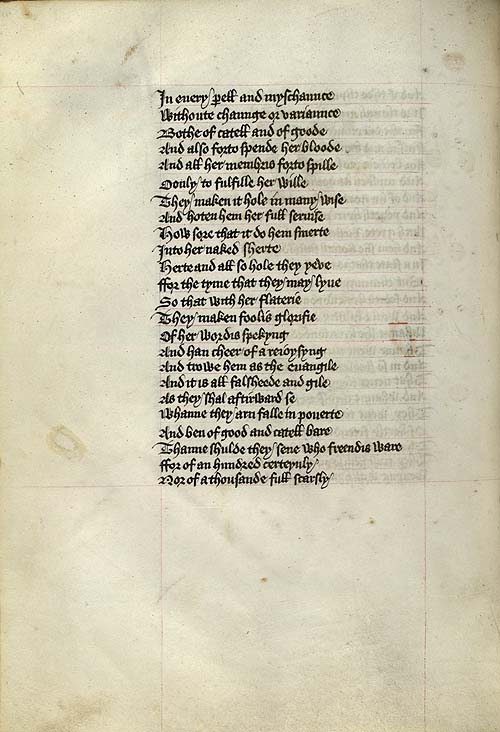 In euery pell and myschaunce
Withoute chaunge or variaunce
Bothe of catell and of goode
And also forto spende her bloode
And all her membris forto spille
Oonly to fulfille her wille
They maken it hole in many wise
And hoten hem her full seruise
How sore that it do hem smerte
Into her naked sherte
Herte and all so hole they yeve
ffor the tyme that they may lyue
So that with her flaterie
They maken foolis glorifie
Of her wordis spekyng
And han cheer of a reioysyng
And trowe hem as the euangile
And it is all falsheede and gile
As they shal aftirward se
Whanne they arn falle in pouerte
And ben of good and catell bare
Thanne shulde they sene who freendis ware
ffor of an hundred certeynly
Nor of a thousande full scarsly